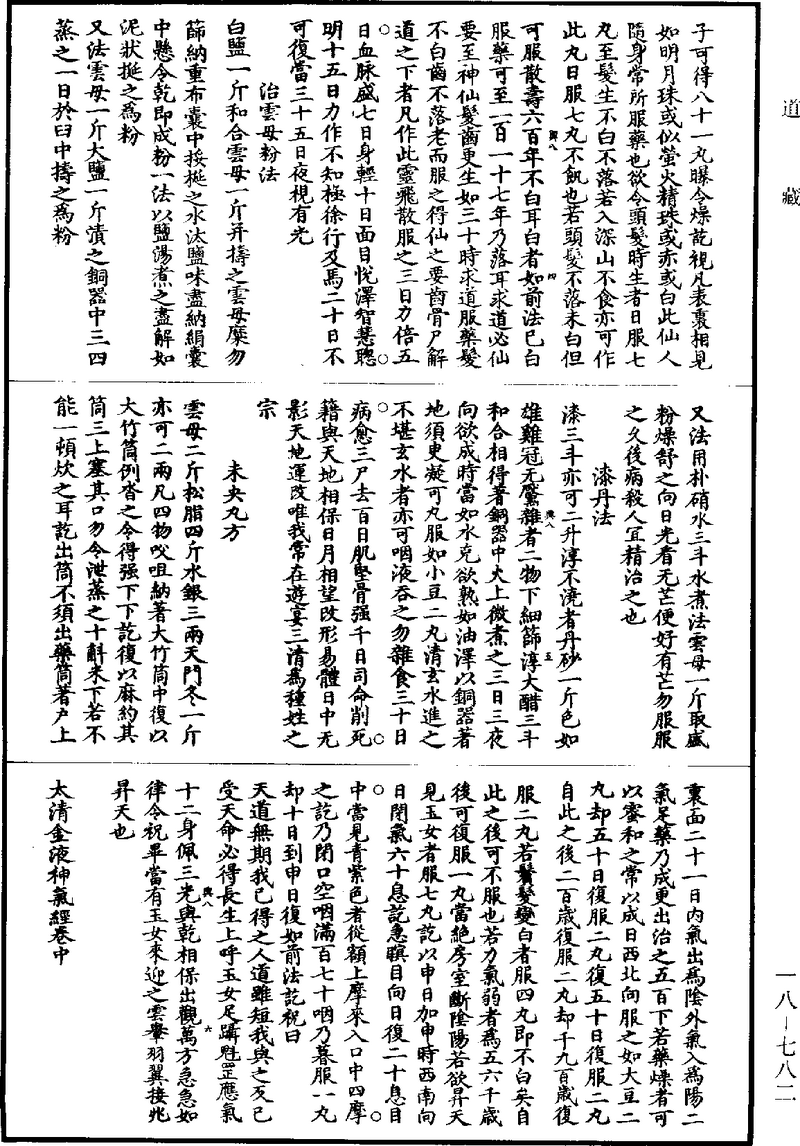 道藏
子可得八十一丸曝令燥訖視凡表裏相見
如明月珠或似螢火精珠或赤或白此仙人
隨身常所服藥也欲令頭髮時生者日服七
丸至髮生不白不落若入深山不食亦可作
此丸日服七丸不飢也若頭髮不落未白但
可服散壽六百年不白耳白者如前法已白
服藥可至一百一十七年乃落耳求道必仙
要至神仙髮齒更生如三十時求道服藥髮
不白齒不落老而服之得仙之要齒骨尸解
道之下者凡作此靈飛散服之三日力倍五
日血脉盛七日身輕十日面目悅澤智慧聰
明十五日力作不知極徐行及馬二十日不
可復當三十五日夜視有光
治雲母粉法
白鹽一斤和合雲母一斤并擣之雲母糜勿
篩納重布囊中挼挻之水汰鹽味盡納絹囊
中懸令乾即成粉一法以鹽湯煮之盡解如
泥狀挻之為粉
又法雲母一斤大鹽一斤漬之銅器中三四
蒸之一日於臼中擣之為粉
又法用朴硝水三斗水煮法雲母一斤取盛
粉燥舒之向日光看无芒便好有芒勿服服
之久後病殺人宜精治之也
漆丹法
漆三斗亦可二升淳不澆者丹砂一斤色如
雄雞冠无黶雜者二物下細篩淳大醋三斗
和合相得著銅器中火上微煮之三日三夜
向欲成時當如水克欲熟如油澤以銅器著
地須更凝可丸服如小豆二丸清玄水進之
不堪玄水者亦可咽液吞之勿雜食三十日
病愈三尸去百日肌堅骨强千日司命削死
籍與天地相保日月相望改形易體日中无
影天地運改唯我常在遊宴三清為種姓之
宗
未央丸方
雲母二斤松脂四斤水銀三兩天門冬一斤
亦可二兩凡四物㕮咀納著大竹筒中復以
大竹筒例沓之令得强下下訖復以麻約其
筒三上塞其口勿令泄蒸之十斛米下若不
能一頓炊之耳訖出筒不須出藥筒著戶上
裏面二十一日內氣出為陰外氣入為陽二
氣足藥乃成更出治之五百下若藥燥者可
以蜜和之常以成日西北向服之如大豆二
丸却五十日復服二丸復五十日復服二丸
自此之後二百歲復服二丸却千九百歲復
服二丸若鬢髮變白者服四丸即不白矣自
此之後可不服也若力氣弱者為五六千歲
後可復服一丸當絕房室斷陰陽若欲昇天
見玉女者服七丸訖以申日加申時西南向
日閉氣六十息訖急瞋目向日復二十息日
中當見青紫色者從額上摩來入口中四摩
之訖乃閉口空咽滿百七十咽乃暮服一丸
却十日到申日復如前法訖祝曰
天道無期我已得之人道雖短我與之反已
受天命必得長生上呼玉女足躡魁罡應氣
十二身佩三光與乾相保出觀萬方急急如
律令祝畢當有玉女來迎之雲轝羽翼接兆
昇天也
太清金液神氣經卷中
一八—七八二